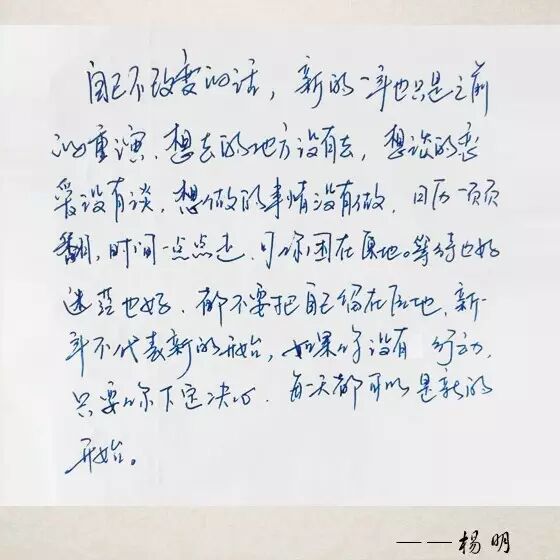 自己不改变的话，新的一年也只是之前
的重演，想去的地方没有去，想谈的恋
爱没有谈，想做的事情没有做，日历一页页
翻，时间一点点走，可你困在原地。等待也好
迷茫也好，都不要把自己留在原地，新一
年不代表新的开始，如果你没有行动，
只要你下定决心，每一天都可以是新的
开始。
——杨明